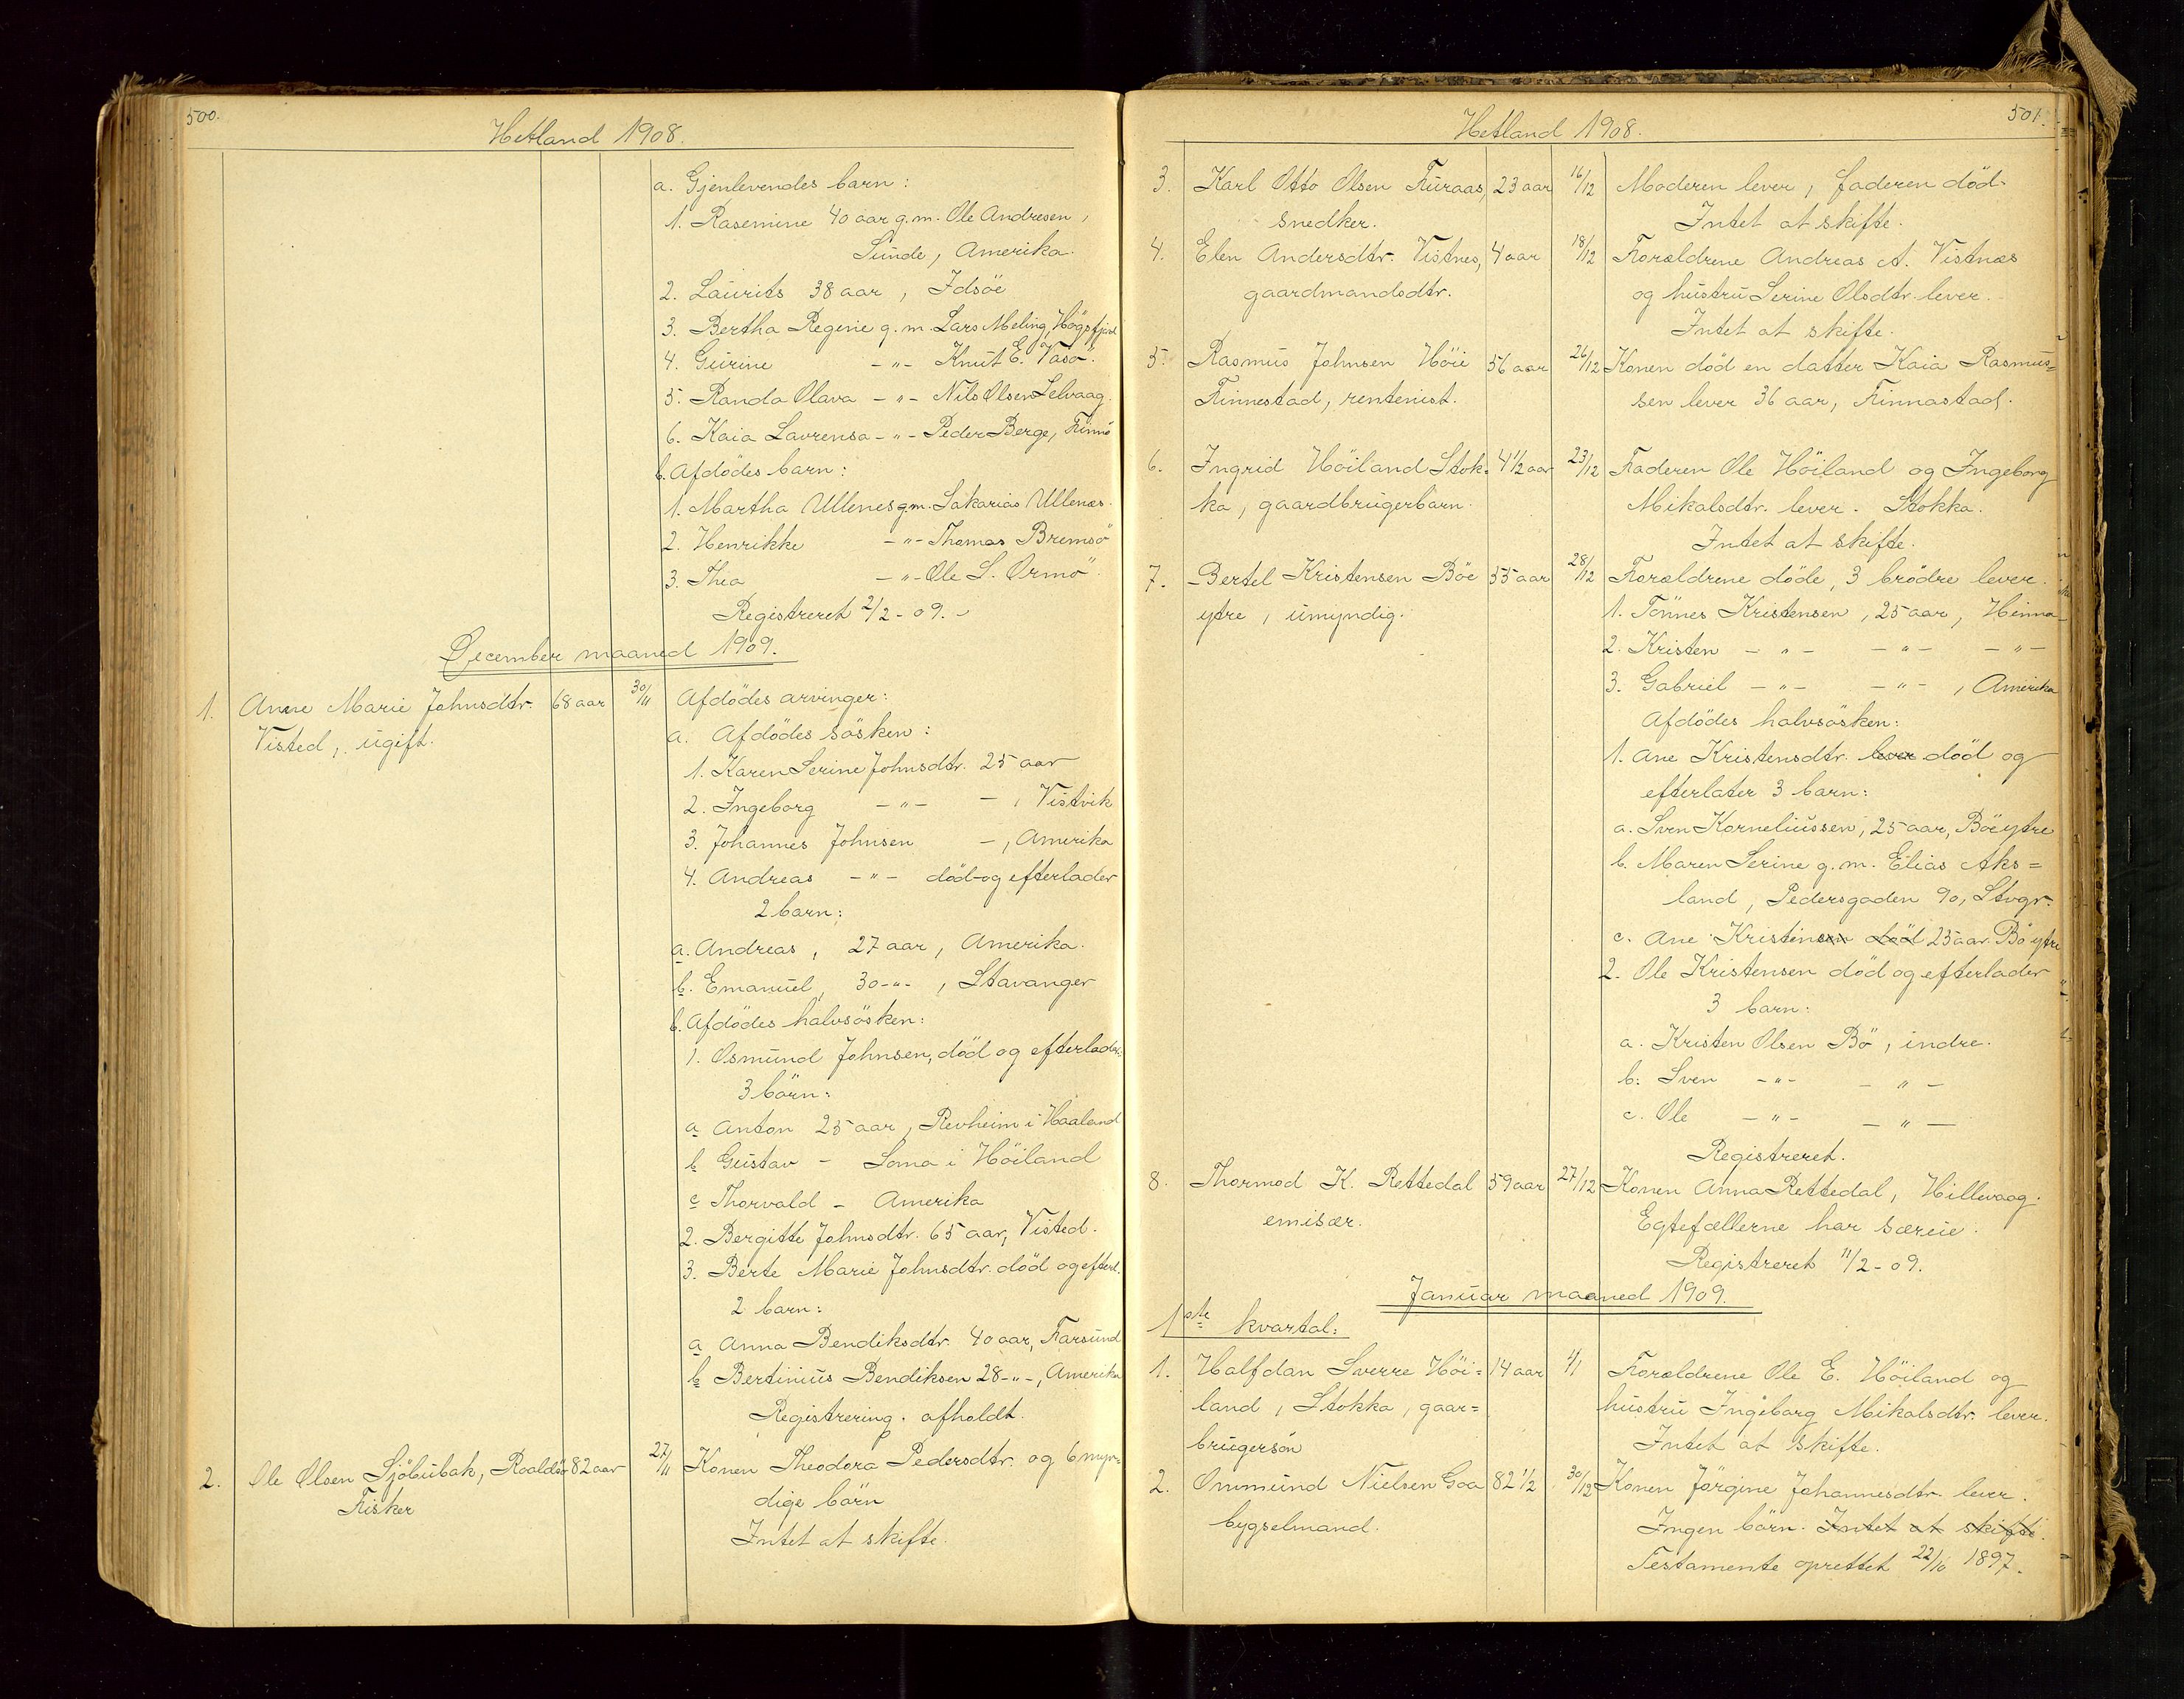 500.
Hetland 1908.
a. Gjenlevendes barn:
1. Rasemine 40 aar g.m. Ole Andresen,
Sunde, Amerika.
2. Laurits 38 aar, Idsöe
3. Bertha Regine g.m. Lars Meling, Högsfjord
4. Gurine -"- Knut E. Vasö.
5. Randa Olava -"- Nils Olsen Selvaag.
6. Kaia Lavrensa -"- Peder Berge, Finnö
b. Afdödes barn:
1. Martha Ullenes g.m. Sakarias Ullenæs.
2. Henrikke -"- Thomas Bremsö
3. Thea -"- Ole S. Ormö.
Registreret 2/2-09.
December maaned 1909.
1. Anne Marie Johnsdtr. 68 aar 30/11 Afdödes arvinger:
Visted, ugift.
a. Afdödes sösken:
1. Karen Serine Johnsdtr. 25 aar
2. Ingeborg -"- -, Vistvik
3. Johannes Johnsen -, Amerika
4. Andreas -"- död og efterlader
2 barn:
a. Andreas, 27 aar, Amerika.
b. Emanuel, 30 -"-, Stavanger
b. Afdödes halvsösken:
1. Osmund Johnsen, död og efterlader
3 börn:
a Anton 25 aar, Revheim i Haaland
b Gustav - Soma i Höiland
c Thorvald - Amerika
2. Bergitte Johnsdtr. 65 aar, Visted.
3. Berte Marie Johnsdtr. död og efterl.
2 barn:
a Anna Bendiksdtr. 40 aar, Farsund
b Bertinius Bendiksen 28 -"-, Amerika
Registrering afholdt.
2. Ole Olsen Sjöbubak, Roaldsö 82 aar 27/11 Konen Theodora Pedersdtr. og 6 myn-
Fisker
dige börn
Intet at skifte.
501.
Hetland 1908.
3. Karl Otto Olsen Furaas, 23 aar 16/12 Moderen lever, faderen död.
snedker. Intet at skifte.
4. Elen Andersdtr. Vistnes, 4 aar 18/12 Forældrene Andreas A. Vistnæs
gaardmandsdtr. og hustru Serine Olsdtr. lever.
Intet at skifte.
5. Rasmus Johnsen Höie 56 aar 26/12 Konen död en datter Kaia Rasmus=
Finnestad, rentenist. sen lever 36 aar, Finnastad.
6. Ingrid Höiland Stok= 4 1/2 aar 23/12 Faderen Ole Höiland og Ingeborg
ka, gaardbrugerbarn. Mikalsdtr. lever. Stokka.
Intet at skifte.
7. Bertel Kristensen Böe 55 aar 28/12 Forældrene döde, 3 brödre lever.
ytre, umyndig. 1. Tönnes Kristensen, 25 aar, Hinna
2. Kristen -"- -"- -"-
3. Gabriel -"- -"-, Amerika
Afdödes halvsösken:
1. Ane Kristensdtr. lever död og
efterlater 3 barn:
a. Sven Korneliussen, 25 aar, Böe ytre
b. Maren Serine g.m. Elias Aks=
land, Pedersgaden 90, Stvgr.
c. Ane Kristinsen död 25 aar. Bö ytre
2. Ole Kristensen död og efterlader
3 barn:
a. Kristen Olsen Bö, indre.
b. Sven -"- -"-
c. Ole -"- -"-
Registreret.
8. Thormod K. Rettedal 59 aar 27/12 Konen Anna Rettedal, Hillevaag.
emisær. Egtefællerne har særeie.
Registreret 11/2-09.
Januar maaned 1909.
1ste kvartal:
1. Halfdan Sverre Höi= 14 aar 4/1 Forældrene Ole E. Höiland og
land, Stokka, gaar= hustru Ingeborg Mikalsdtr. lever.
brugersön Intet at skifte.
2. Ommund Nielsen Goa 82 1/2 30/12 Konen Jörgine Johannesdtr. lever.
bygselmand. Ingen börn. Intet at skifte.
Testamente oprettet 22/10 1897.